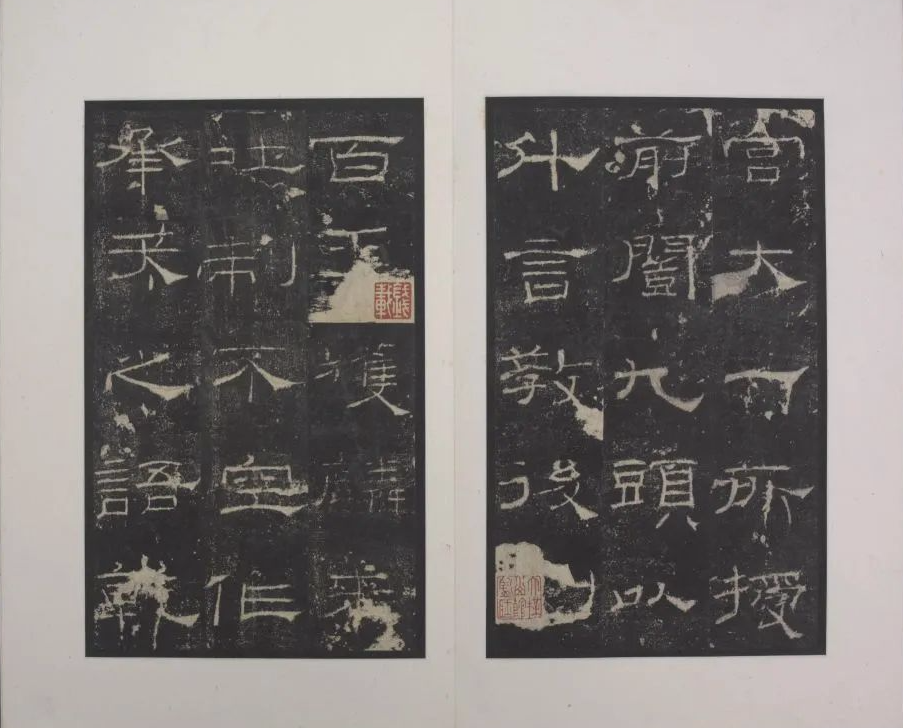 宮大一所授
前闓九頭以
升言教後
百王獲麟來
吐制不空作
承天之語乾